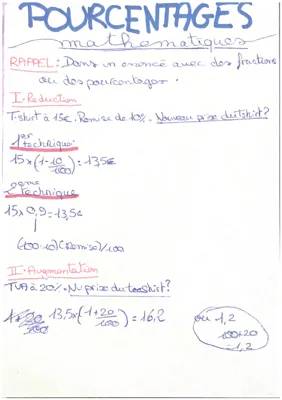 POURCENTAGES
mathématiques
RAPPEL : Dans un exercice avec des fractions
ou des pourcentages.
I. Réduction
T-shirt à 15€. Remise de 10%. Nouveau prix du tshirt?
1ère technique:
15×(1-10/100) = 13,5€
2ème technique
15×0,9=13,5€
(100-10)(Remise)/100
II. Augmentation
TVA à 20%. Nv prix du teeshirt?
13,5×(1+20/100) = 16,2
ou 1,2
100+20
= 1,2